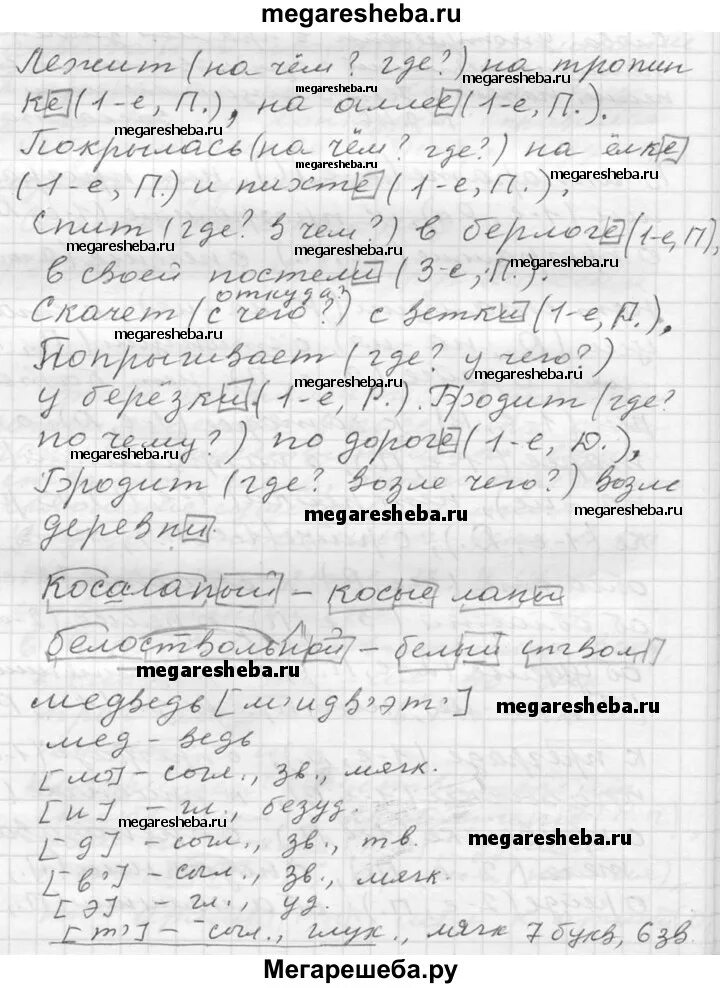 megaresheba.ru
Лежит (на чём? где?) на тропин
ке (1-е, П.), на аллее (1-е, П.).
megaresheba.ru megaresheba.ru
Покрылась (на чём? где?) на ёлке
megaresheba.ru
(1-е, П.) и пихте (1-е, П.),
megaresheba.ru
Спит (где? в чем?) в берлоге (1-е, П),
megaresheba.ru megaresheba.ru
в своей постели (3-е, П.).
откуда?
Скачет (с чего?) с ветки (1-е, Р.),
megaresheba.ru
Попрыгивает (где? у чего?)
megaresheba.ru
у берёзки (1-е, Р.). Бродит (где?
по чему?) по дороге (1-е, Д.),
megaresheba.ru
Бродит (где? возле чего?) возле
megaresheba.ru
деревни.
косалапый – косые лапы
белоствольной – белый ствол
megaresheba.ru
медведь [м'идв'эт'] megaresheba.ru
мед – ведь
[м'] – согл., зв., мягк.
[и] – гл., безуд.
megaresheba.ru
[д] – согл., зв., тв. megaresheba.ru
[в'] – согл., зв., мягк.
megaresheba.ru
[э] – гл., уд.
[т'] – согл., глух., мягк 7 букв, 6 зв.
Мегарешеба.ру